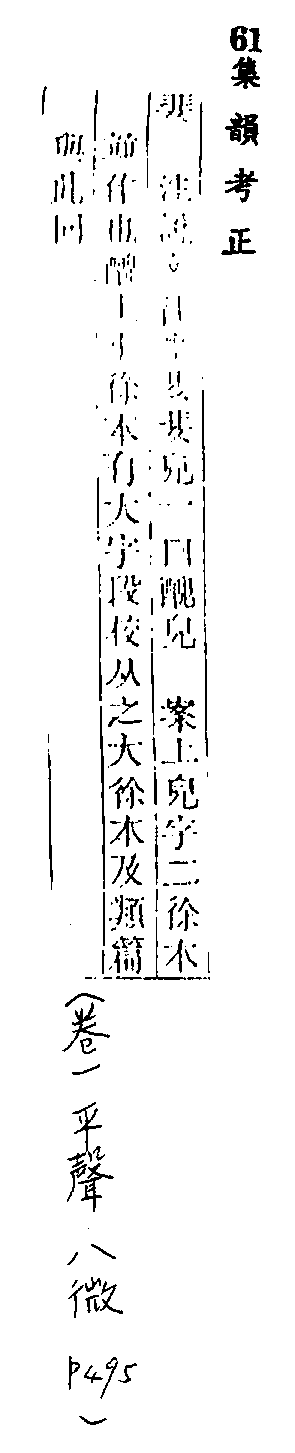 61集韻考正
婓 注說文 往來婓婓皃一曰醜皃 案上皃字二徐本
並作也醜上小徐本有大字段校从之大徐本及類篇
與此同
（卷一平聲八微P495）